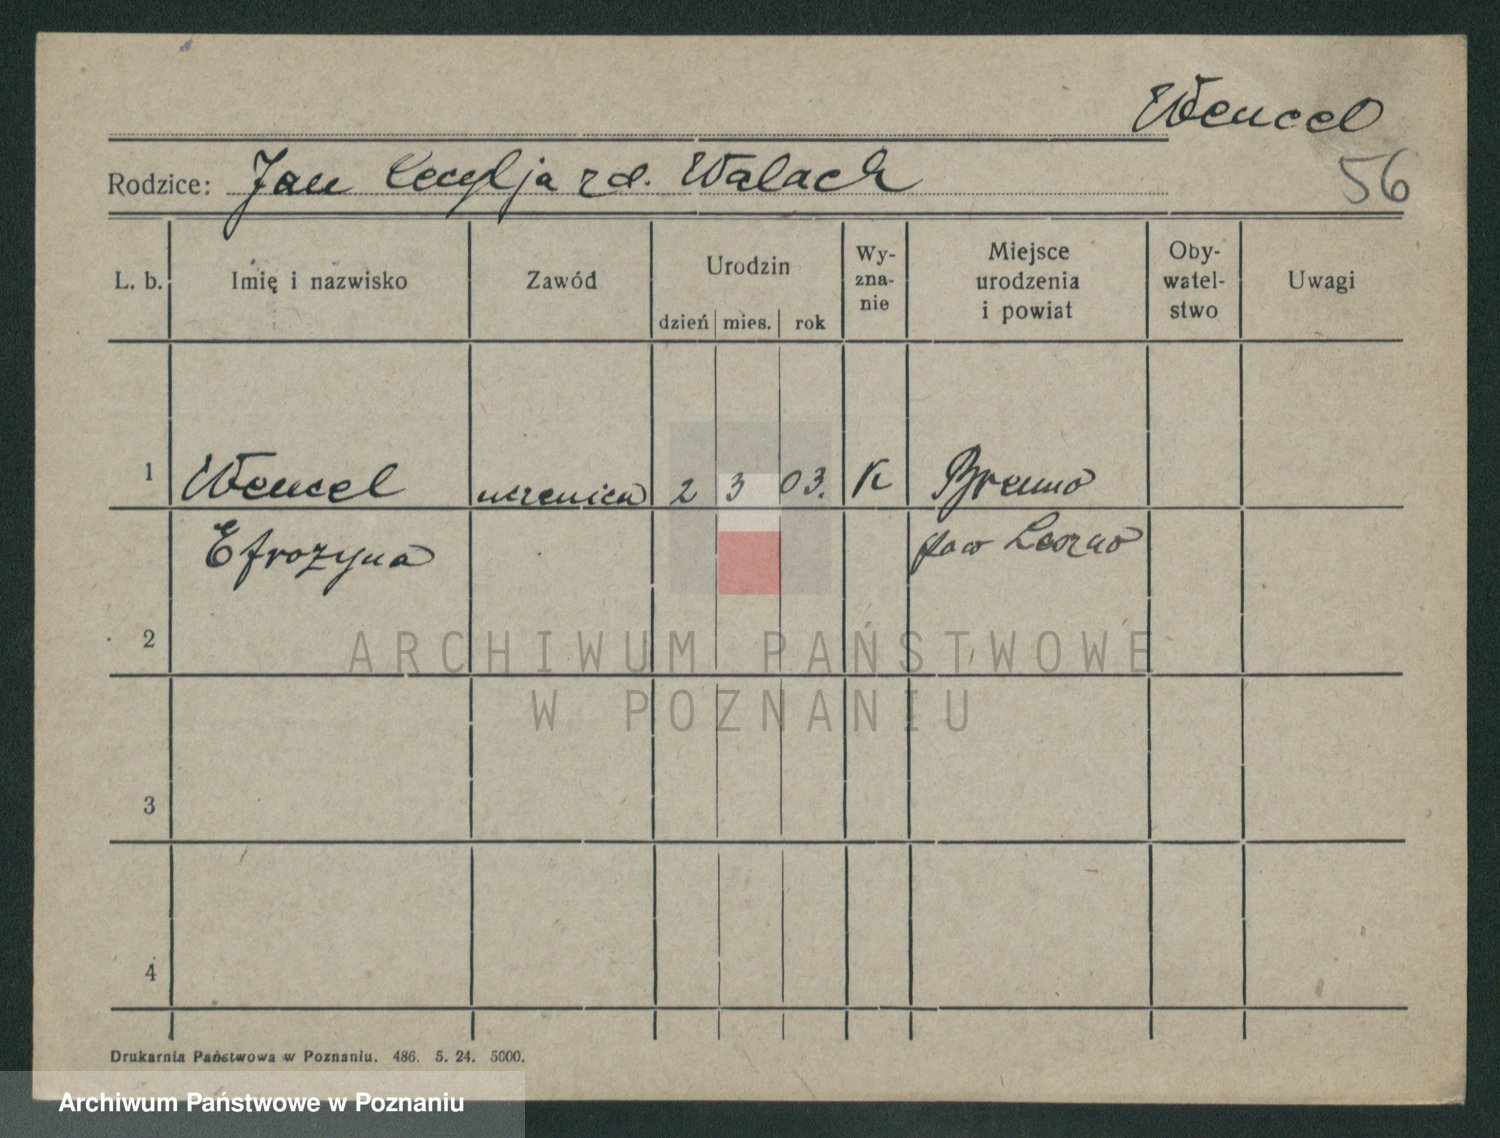 Wencel
56
Rodzice: Jan Cecylja zd. Walach
L. b. Imię i nazwisko Zawód Urodzin dzień mies. rok Wy-zna-nie Miejsce urodzenia i powiat Oby-watel-stwo Uwagi
1 Wencel uczenica 2 3 03. K Brenno
Efrozyna pow Leszno
2
ARCHIWUM PAŃSTWOWE
W POZNANIU
3
4
Drukarnia Państwowa w Poznaniu. 486. 5. 24. 5000.
Archiwum Państwowe w Poznaniu